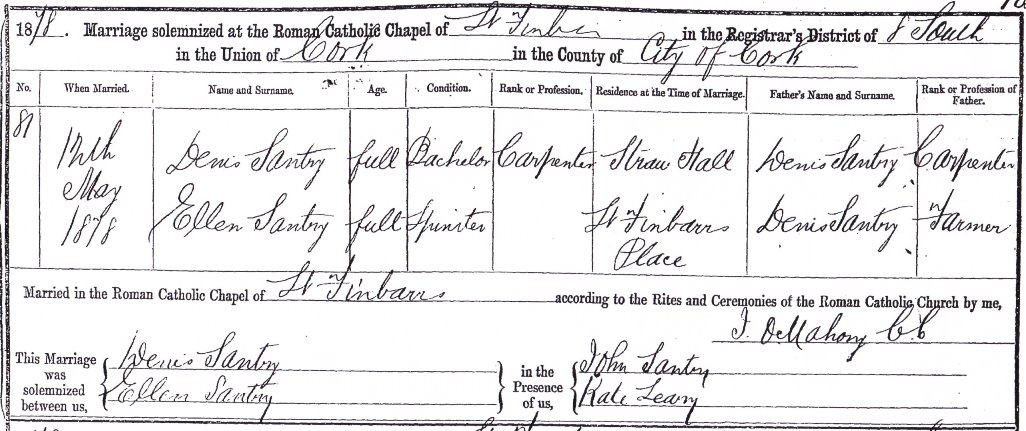 1878. Marriage solemnized at the Roman Catholic Chapel of St Finbar in the Registrar's District of 8 South
in the Union of Cork in the County of City of Cork
No. When Married. Name and Surname. Age. Condition. Rank or Profession. Residence at the Time of Marriage. Father's Name and Surname. Rank or Profession of Father.
81
12th May 1878
Denis Santry full Bachelor Carpenter Straw Hall Denis Santry Carpenter
Ellen Santry full Spinster St Finbarrs Place Denis Santry Farmer
Married in the Roman Catholic Chapel of St Finbarrs according to the Rites and Ceremonies of the Roman Catholic Church by me,
J. OMahony CC
This Marriage was solemnized between us,
Denis Santry
Ellen Santry
in the Presence of us,
John Santry
Kate Leary